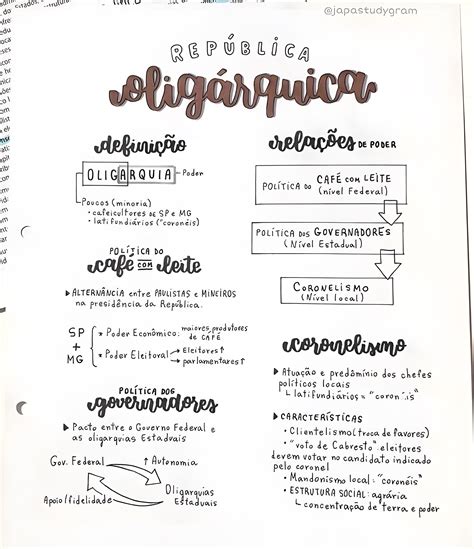 @japastudygram
REPÚBLICA
oligárquica
definição
OLIGARQUIA Poder
Poucos (minoria)
• cafeicultores de SP e MG
• latifundiários ("coronéis")
POLÍTICA DO
café com leite
▸ ALTERNÂNCIA entre PAULISTAS e MINEIROS
na presidência da República.
SP
+
MG
* Poder Econômico: maiores produtores
de CAFÉ
* Poder Eleitoral → Eleitores ↑
→ parlamentares ↑
POLÍTICA DOS
governadores
▸ Pacto entre o Governo Federal e
as oligarquias Estaduais
Gov. Federal ↑ Autonomia
Apoio/fidelidade Oligarquias
Estaduais
relações DE PODER
POLÍTICA DO CAFÉ COM LEITE
(nível Federal)
POLÍTICA DOS GOVERNADORES
(Nível Estadual)
CORONELISMO
(Nível local)
coronelismo
▸ Atuação e predomínio dos chefes
políticos locais
latifundiários = "coronéis"
▸ CARACTERÍSTICAS
• Clientelismo (troca de favores)
• "voto de Cabresto": eleitores
devem votar no candidato indicado
pelo coronel
• Mandonismo local: "coronéis"
• ESTRUTURA SOCIAL: agrária
concentração de terra e poder